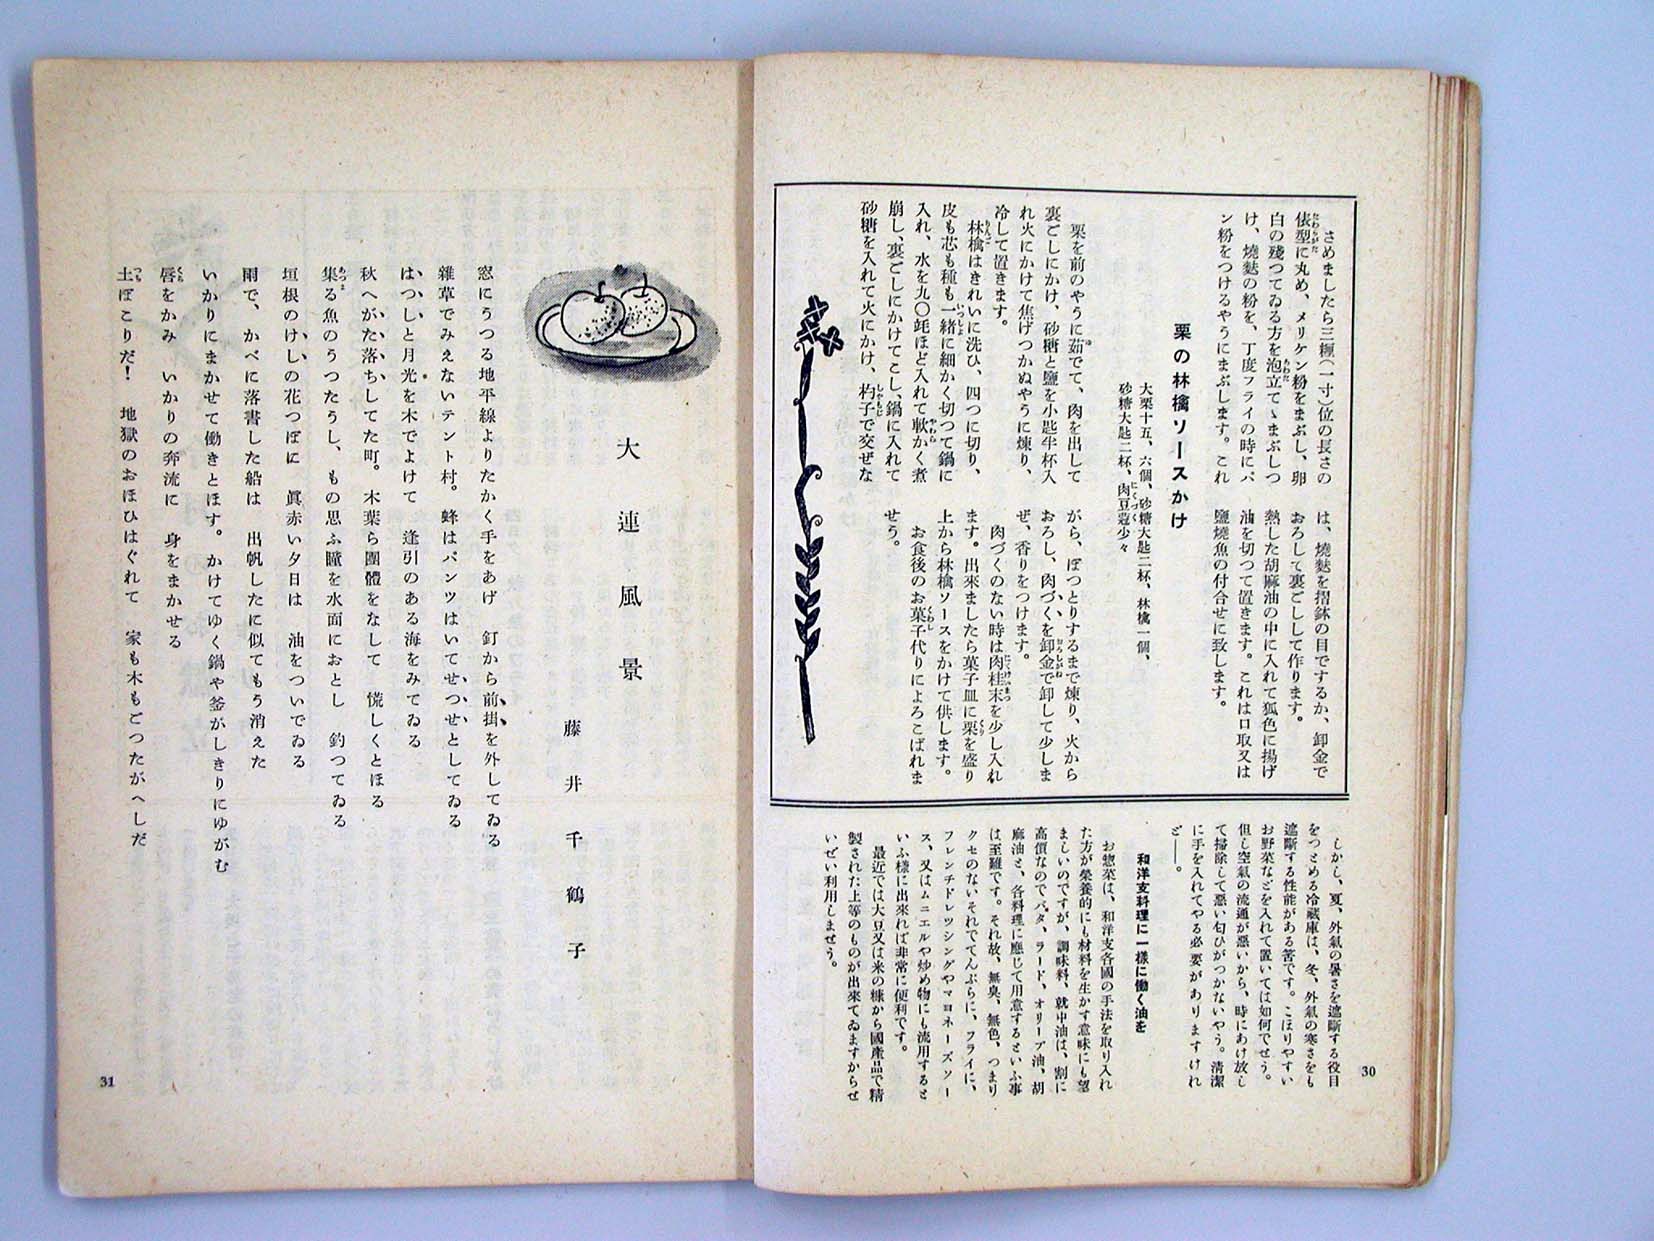 さめましたら三糎(一寸)位の長さの
俵型に丸め、メリケン粉をまぶし、卵
白の殘つてゐる方を泡立てゝまぶしつ
け、燒麩の粉を、丁度フライの時にパ
ン粉をつけるやうにまぶします。これ
は、燒麩を摺鉢の目でするか、卸金で
おろして裏ごしして作ります。
熱した胡麻油の中に入れて狐色に揚げ
油を切つて置きます。これは口取又は
鹽燒魚の付合せに致します。
栗の林檎ソースかけ
大栗十五、六個、砂糖大匙二杯、林檎一個、
砂糖大匙二杯、肉豆蔲少々
栗を前のやうに茹でて、肉を出して
裏ごしにかけ、砂糖と鹽を小匙半杯入
れ火にかけて焦げつかぬやうに煉り、
冷して置きます。
林檎はきれいに洗ひ、四つに切り、
皮も芯も種も一緒に細かく切つて鍋に
入れ、水を九〇竓ほど入れて軟かく煮
崩し、裏ごしにかけてこし、鍋に入れて
砂糖を入れて火にかけ、杓子で交ぜな
がら、ぽつとりするまで煉り、火から
おろし、肉づくを卸金で卸して少しま
ぜ、香りをつけます。
肉づくのない時は肉桂末を少し入れ
ます。出來ましたら菓子皿に栗を盛り
上から林檎ソースをかけて供します。
お食後のお菓子代りによろこばれま
せう。
しかし、夏、外氣の暑さを遮斷する役目
をつとめる冷藏庫は、冬、外氣の寒さをも
遮斷する性能がある筈です。こほりやすい
お野菜などを入れて置いては如何でせう。
但し空氣の流通が惡いから、時にあけ放し
て掃除して惡い匂ひがつかないやう。淸潔
に手を入れてやる必要がありますけれ
ど――。
和洋支料理に一樣に働く油を
お惣菜は、和洋支各國の手法を取り入れ
た方が榮養的にも材料を生かす意味にも望
ましいのですが、調味料、就中油は、割に
高價なのでバタ、ラード、オリーブ油、胡
麻油と、各料理に應じて用意するといふ事
は至難です。それ故、無臭、無色、つまり
クセのないそれでてんぷらに、フライに、
フレンチドレツシングやマヨネーズソー
ス、又はムニエルや炒め物にも流用すると
いふ樣に出來れば非常に便利です。
最近では大豆又は米の糠から國產品で精
製された上等のものが出來てゐますからせ
いぜい利用しませう。
30
大連風景
藤井千鶴子
窓にうつる地平線よりたかく手をあげ 釘から前掛を外してゐる
雜草でみえないテント村。蜂はパンツはいてせつせとしてゐる
はつしと月光を木でよけて 逢引のある海をみてゐる
秋へがた落ちしてた町。木葉ら團體をなして 慌しくとほる
集る魚のうつたうし、もの思ふ瞳を水面におとし 釣つてゐる
垣根のけしの花つぼに 眞赤い夕日は 油をついでゐる
雨で、かべに落書した船は 出帆したに似てもう消えた
いかりにまかせて働きとほす。かけてゆく鍋や釜がしきりにゆがむ
唇をかみ いかりの奔流に 身をまかせる
土ぼこりだ! 地獄のおほひはぐれて 家も木もごつたがへしだ
31